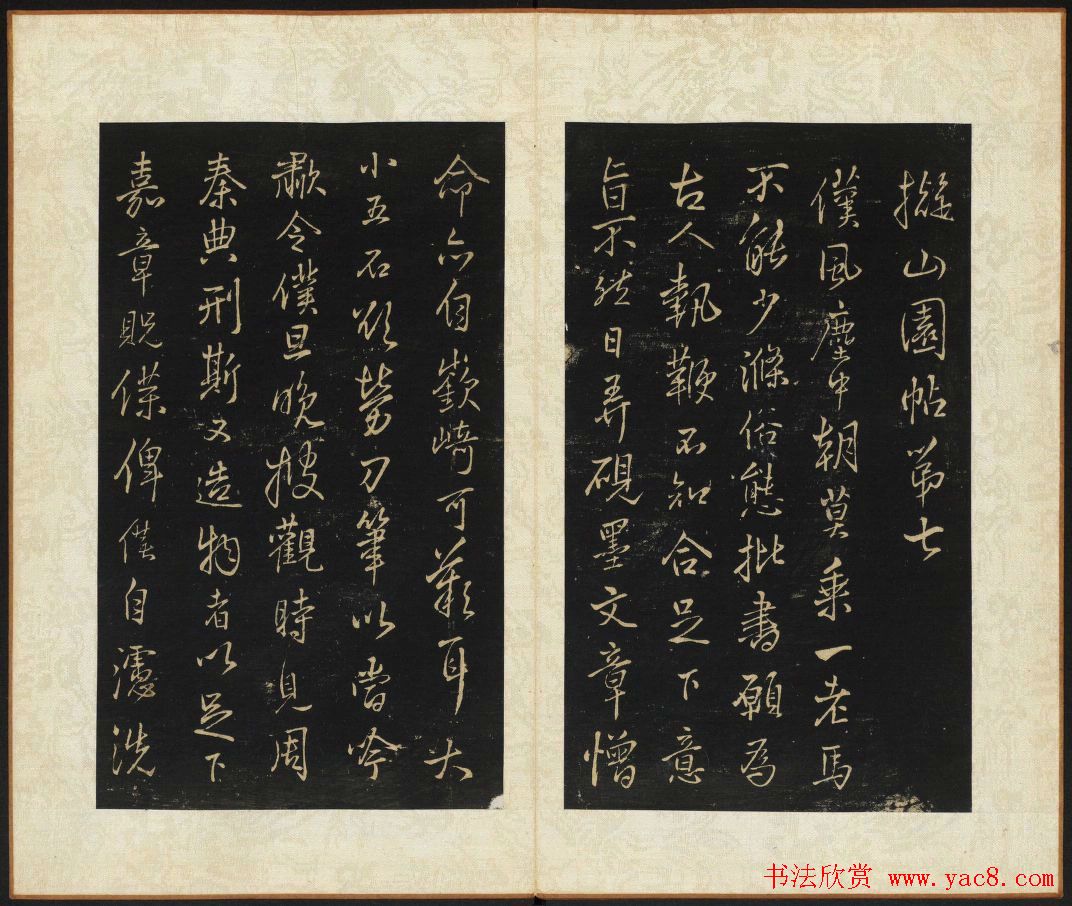 擬山園帖第七
僕風塵中朝莫乘一老馬
不能少滌俗態批書願為
古人執鞭不知合足下意
旨不然日弄硯墨文章憎
命亦自嶔崎可蘄耳大
小五石欲勞刀筆以當吟
歗令僕旦晚披觀時見周
秦典刑斯又造物者以足下
嘉章貺僕俾僕自濾洗
书法欣赏 www.yac8.com